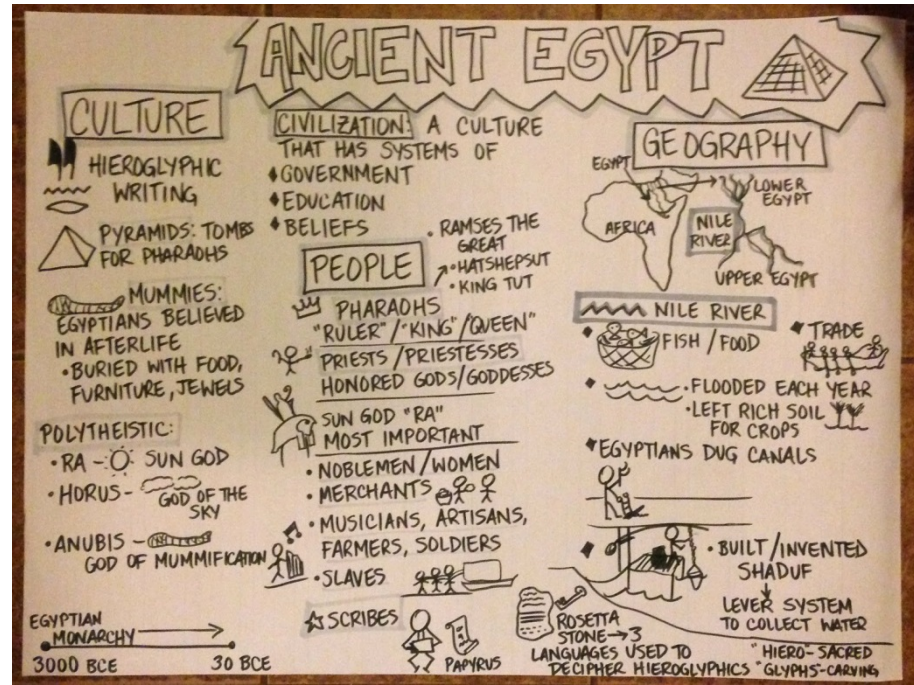 ANCIENT EGYPT
CULTURE
HIEROGLYPHIC
WRITING
PYRAMIDS: TOMBS
FOR PHARAOHS
MUMMIES:
EGYPTIANS BELIEVED
IN AFTERLIFE
• BURIED WITH FOOD,
FURNITURE, JEWELS
POLYTHEISTIC:
• RA - SUN GOD
• HORUS - GOD OF THE
SKY
• ANUBIS -
GOD OF MUMMIFICATION
EGYPTIAN
MONARCHY
3000 BCE 30 BCE
CIVILIZATION: A CULTURE
THAT HAS SYSTEMS OF
♦ GOVERNMENT
♦ EDUCATION
♦ BELIEFS
PEOPLE
• RAMSES THE
GREAT
• HATSHEPSUT
• KING TUT
PHARAOHS
"RULER"/"KING"/"QUEEN"
PRIESTS/PRIESTESSES
HONORED GODS/GODDESSES
SUN GOD "RA"
MOST IMPORTANT
• NOBLEMEN/WOMEN
• MERCHANTS
• MUSICIANS, ARTISANS,
FARMERS, SOLDIERS
• SLAVES
☆ SCRIBES
PAPYRUS
GEOGRAPHY
EGYPT
AFRICA
LOWER
EGYPT
NILE
RIVER
UPPER EGYPT
NILE RIVER
♦ FISH / FOOD
♦ TRADE
♦ • FLOODED EACH YEAR
• LEFT RICH SOIL
FOR CROPS
♦ EGYPTIANS DUG CANALS
♦ • BUILT/INVENTED
SHADUF
LEVER SYSTEM
TO COLLECT WATER
ROSETTA
STONE → 3
LANGUAGES USED TO
DECIPHER HIEROGLYPHICS
"HIERO- SACRED
"GLYPHS"-CARVING